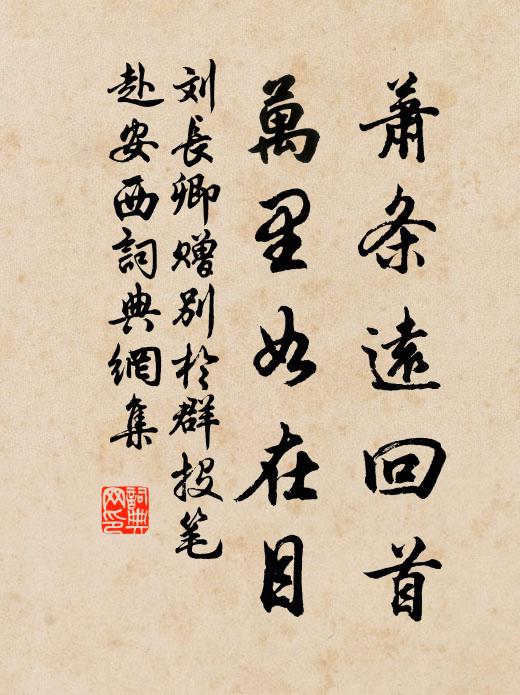 蕭条遠回首
萬里如在目
刘長卿赠别於群投笔
赴安西詞典網集
詞典网印